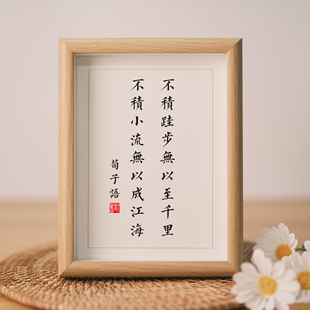 不積跬步無以至千里
不積小流無以成江海
荀子語